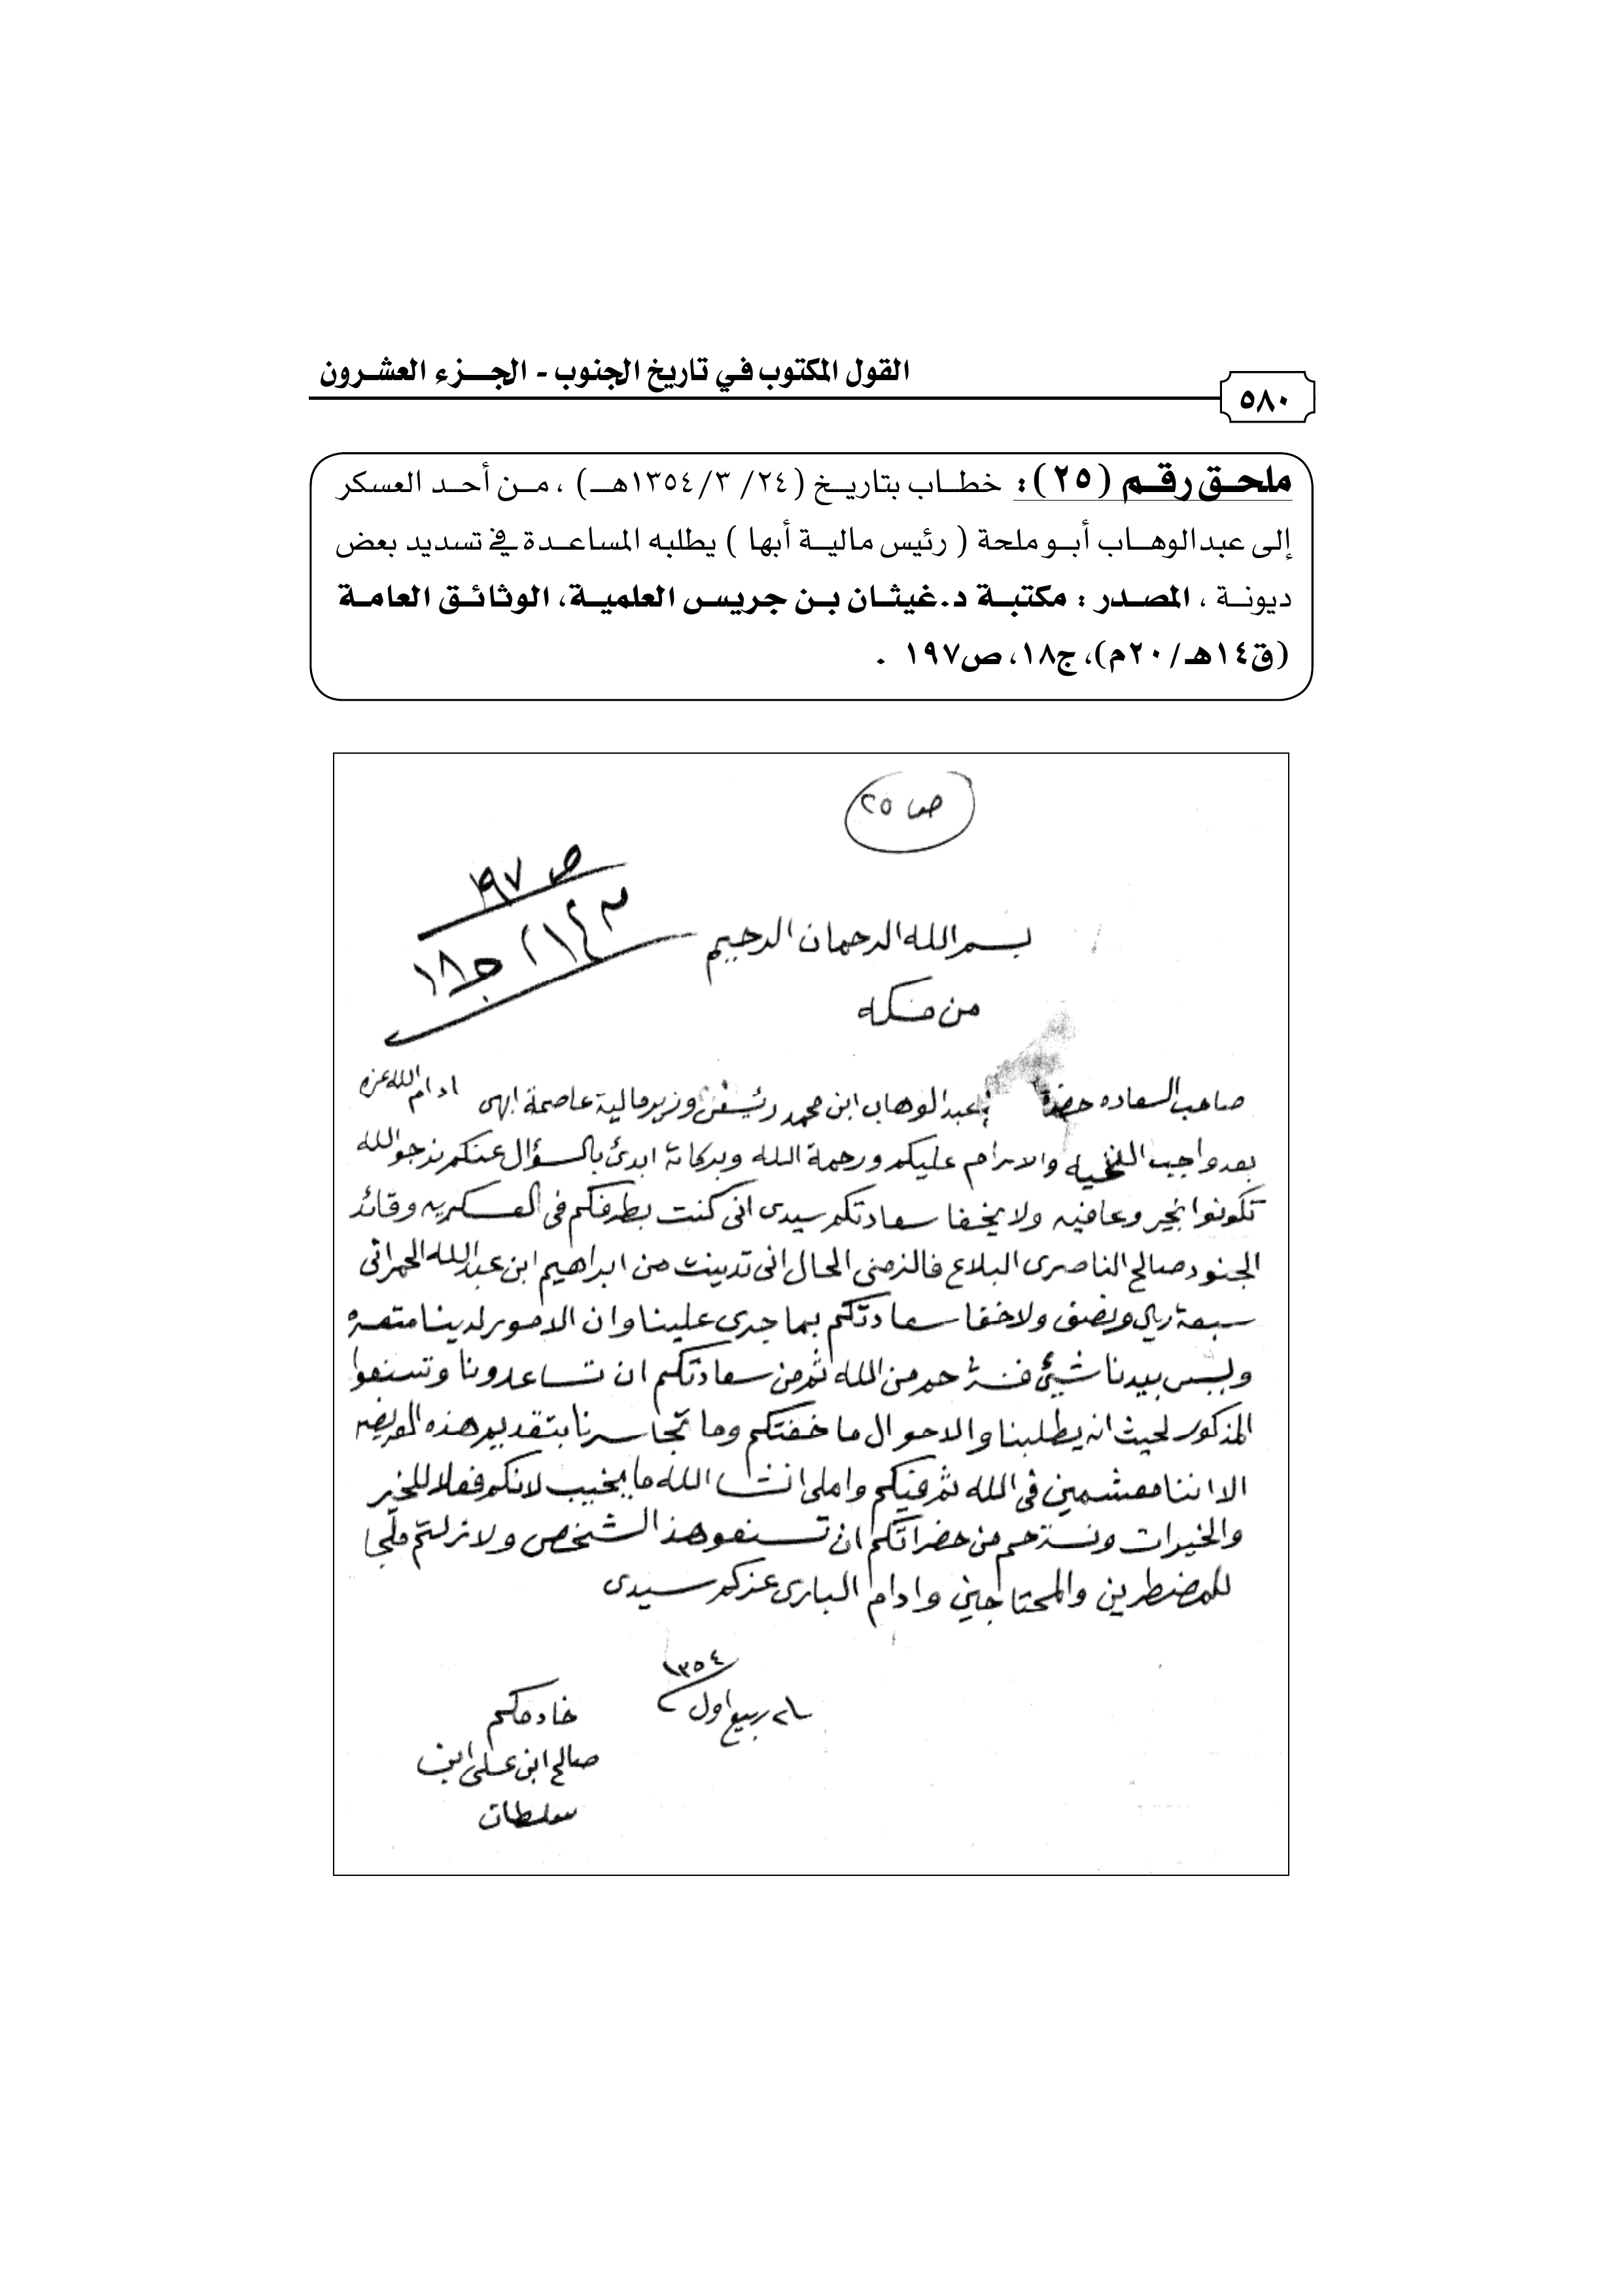 القول المكتوب في تاريخ الجنوب - الجزء العشرون
٥٨٠
ملحق رقم (٢٥): خطاب بتاريخ (٢٤/ ٣/ ١٣٥٤هـ) ، من أحد العسكر
إلى عبدالوهاب أبو ملحة ( رئيس مالية أبها ) يطلبه المساعدة في تسديد بعض
ديونة ، المصدر : مكتبة د.غيثان بن جريس العلمية، الوثائق العامة
(ق١٤هـ/٢٠م)، ج١٨، ص١٩٧ .
ص ٢٥
ص ١٩٧
ج ١٨
بسم الله الرحمان الرحيم
من مكه
صاحب السعاده حضرة عبدالوهاب ابن محمد وزير مالية عاصمة ابهى ادام الله عزه
بعد واجب التحيه والاحترام عليكم ورحمة الله وبركاته ابدئ بالسؤال عنكم نرجو الله
تكونوا بخير وعافيه ولا يخفا سعادتكم سيدى انى كنت بطرفكم فى العسكريه وقائد
الجنود صالح الناصرى البلاع فالزمنى الحال انى تدينت من ابراهيم ابن عبدالله الحمرانى
سبعة ريال ونصف ولا خفا سعادتكم بما جرى علينا وان الامور لدينا متعسره
وليس بيدنا شيئ فنسترحم من الله ثم من سعادتكم ان تساعدونا وتسنعوا
المذكور لحيث انه يطلبنا والاحوال ما خفتكم وما تجاسرنا بتقديم هذه العريضه
الا اننا معشمين فى الله ثم فيكم واملى انشا الله ما يخيب لانكم فعلا للخير
والخيرات ونسترحم من حضراتكم ان تسنعو هذ الشخص ولا زلتم ملجا
للمضطرين والمحتاجين وادام البارى عزكم سيدى
١٣٥٤
ربيع اول
خادمكم
صالح ابن على ابن
سلطان